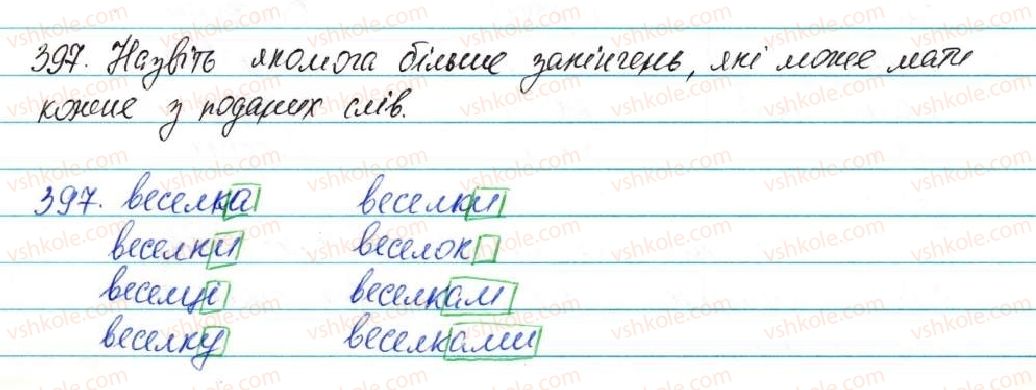 397. Назвіть якомога більше закінчень, які може мати
кожне з поданих слів.
397. веселка веселки
веселки веселок
веселці веселкам
веселку веселками
vshkole.com